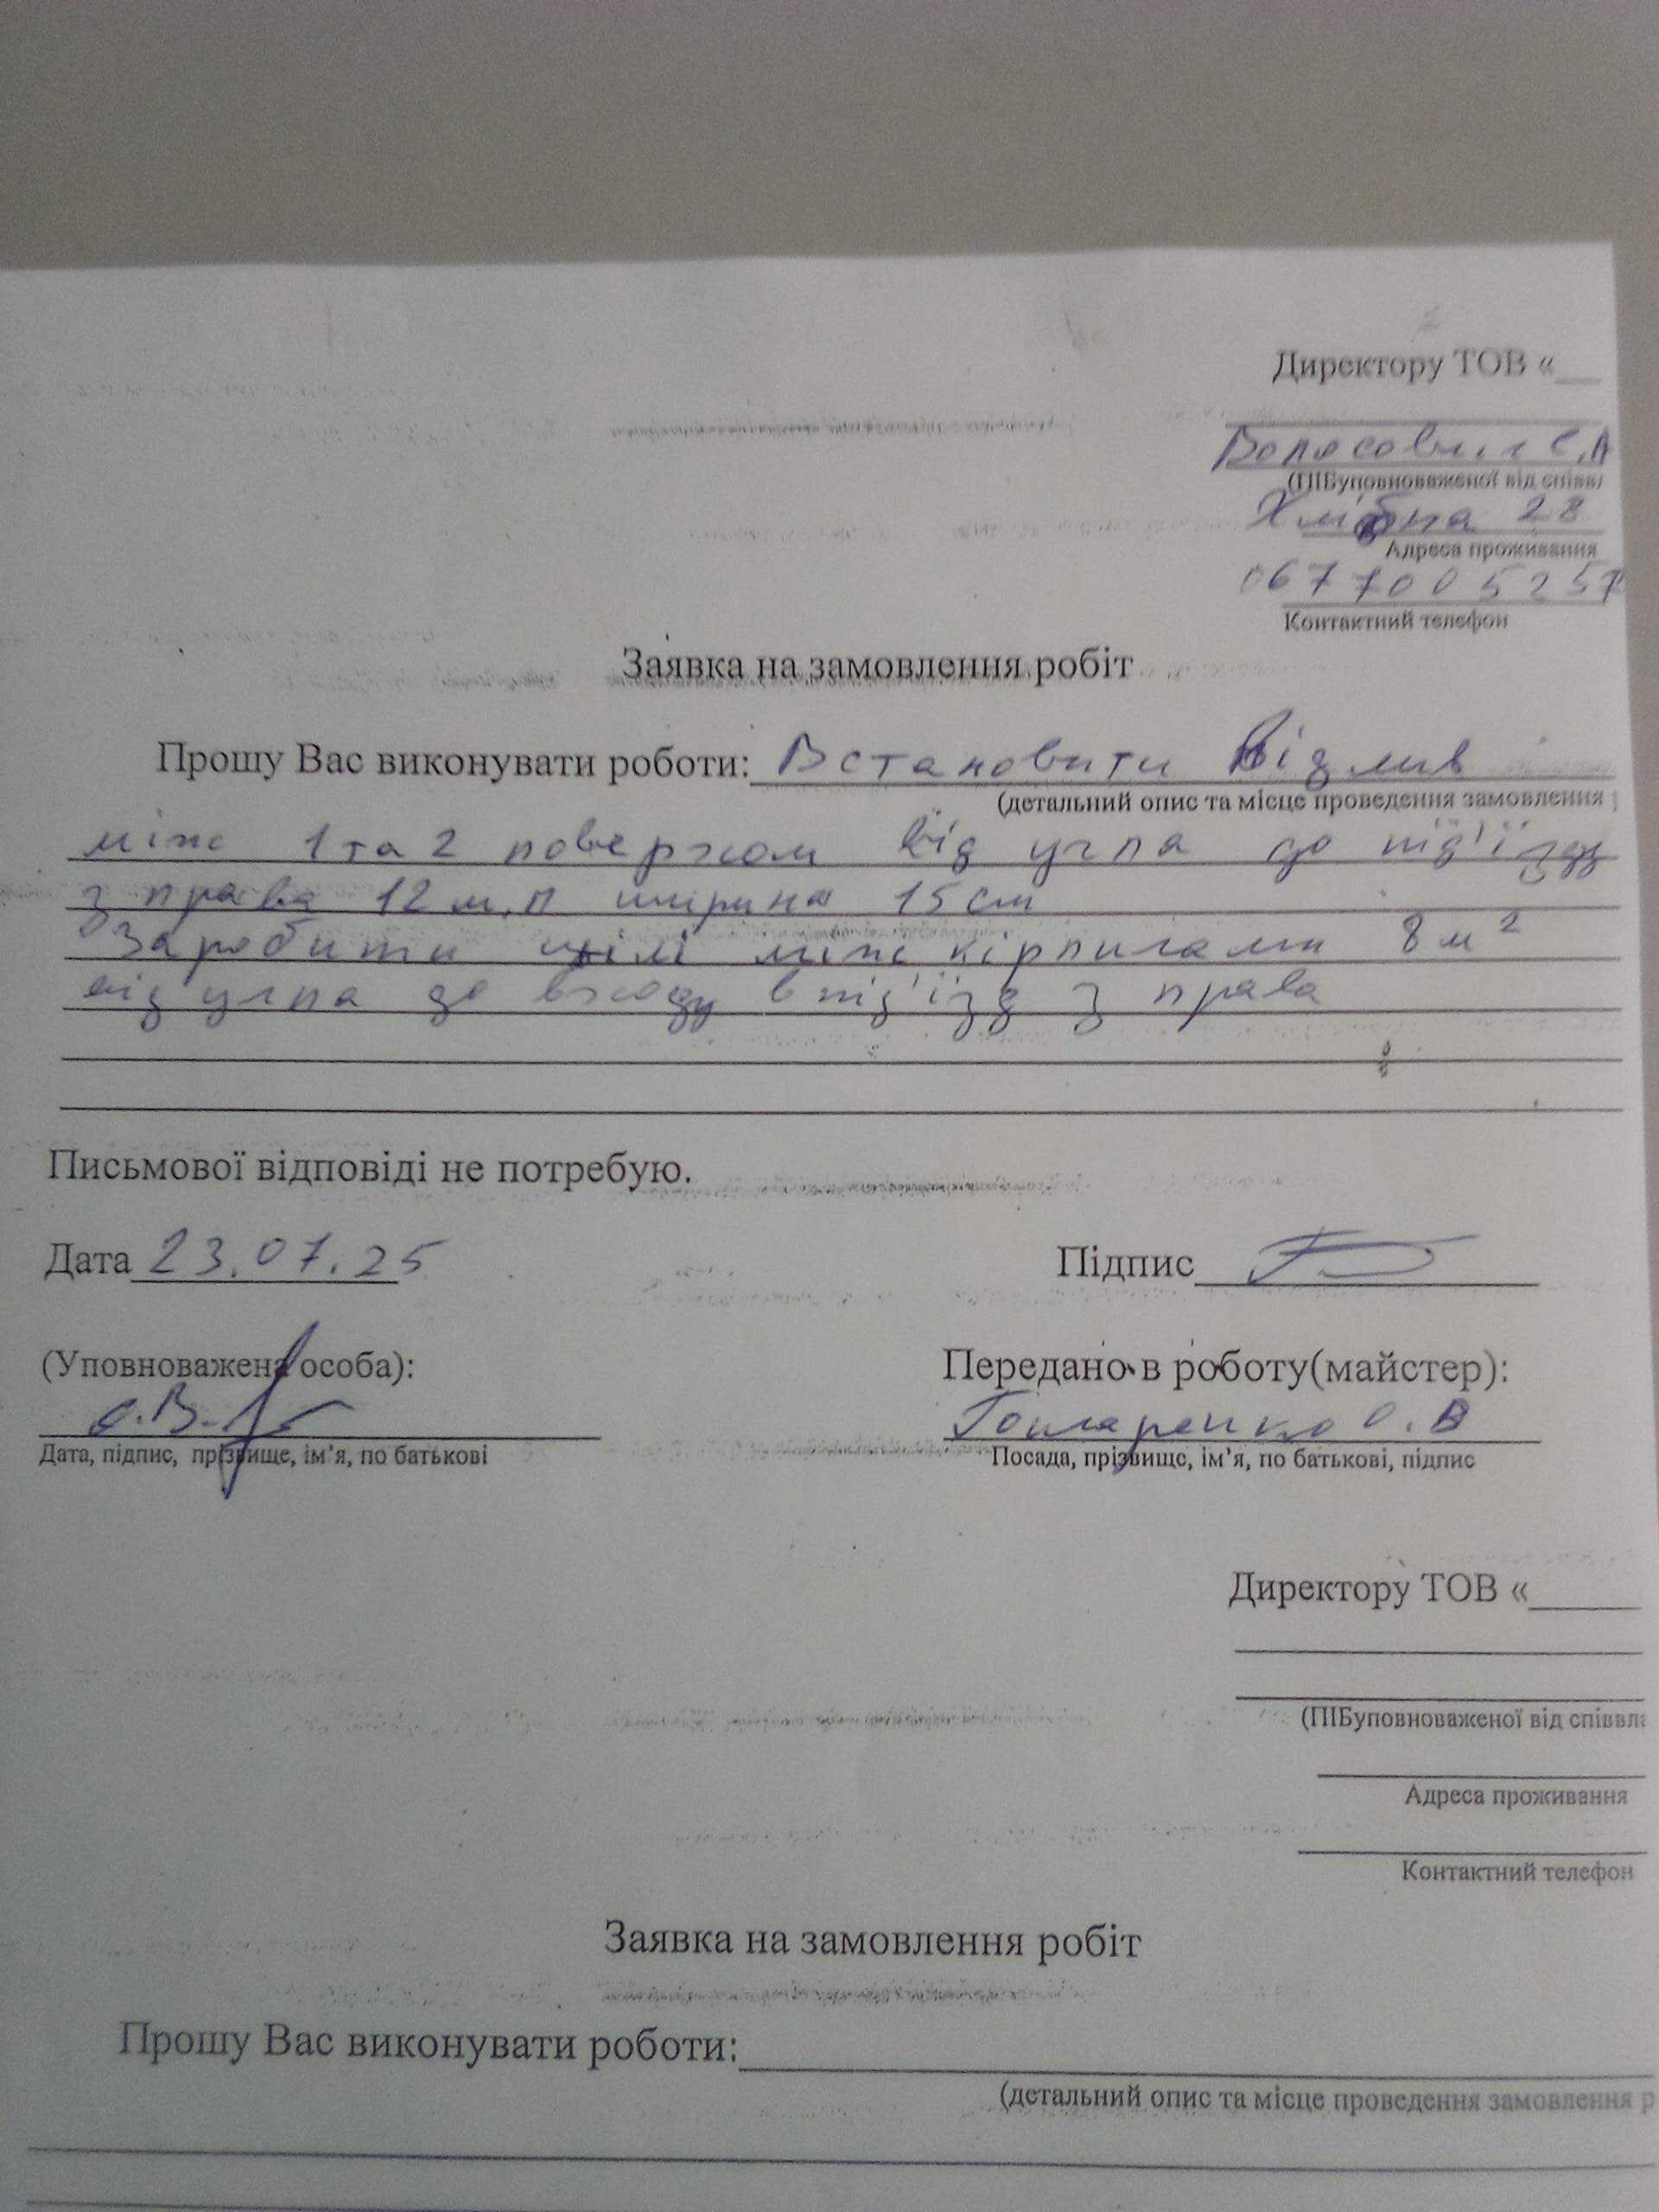 Директору ТОВ «
(ПІБуповноваженої від співвл
Хмібна 28
Адреса проживання
0677005257
Контактний телефон
Заявка на замовлення робіт
Прошу Вас виконувати роботи: Встановити Відлив
(детальний опис та місце проведення замовлення
між 1 та 2 поверхом від угла до під'їзду
з права 12 м.п ширина 15 см
Заробити щілі між кірпичами 8 м²
від угла до входу в під'їзд з права
Письмової відповіді не потребую.
Дата 23.07.25
Підпис
(Уповноважена особа):
Передано в роботу(майстер):
О.В
Дата, підпис, прізвище, ім’я, по батькові
Посада, прізвище, ім’я, по батькові, підпис
Директору ТОВ «
(ПІБуповноваженої від співвла
Адреса проживання
Контактний телефон
Заявка на замовлення робіт
Прошу Вас виконувати роботи:
(детальний опис та місце проведення замовлення р